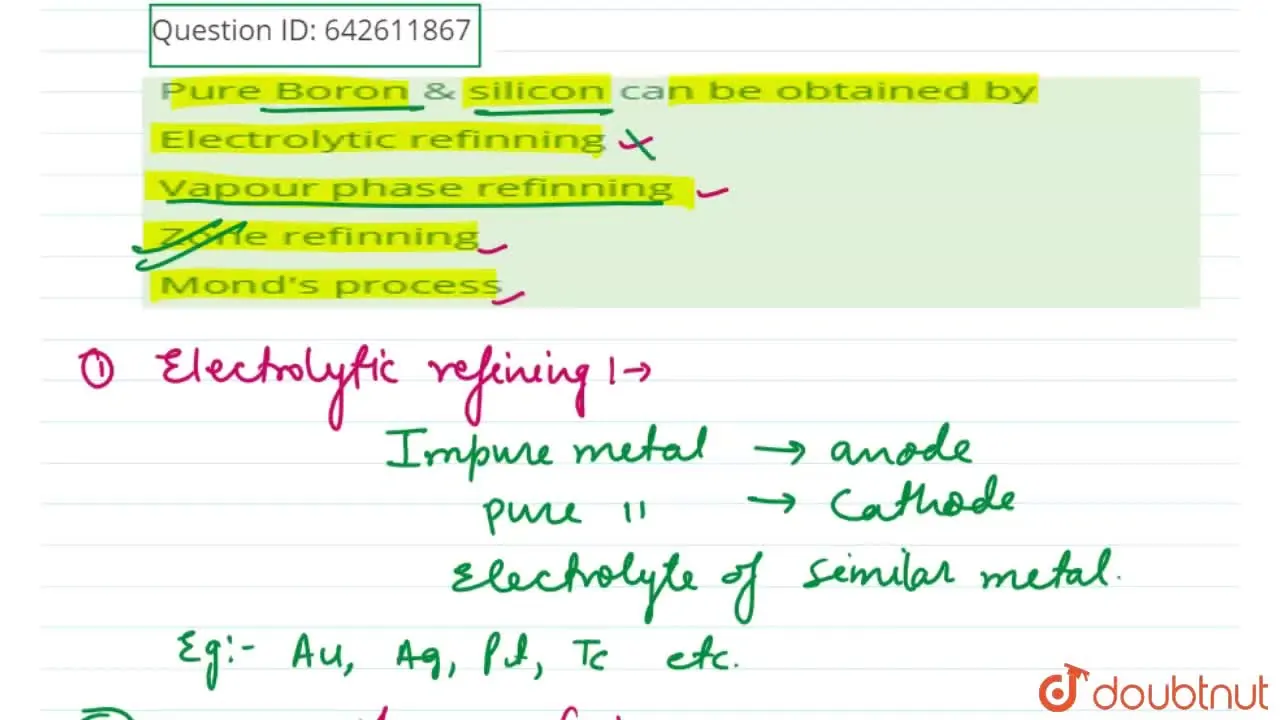 Question ID: 642611867
Pure Boron & silicon can be obtained by
Electrolytic refinning
Vapour phase refinning
Zone refinning
Mond's process
① Electrolytic refining :→
Impure metal → anode
pure 11 → Cathode
Electrolyte of similar metal.
Eg:- Au, Ag, Pt, Tc etc.
doubtnut